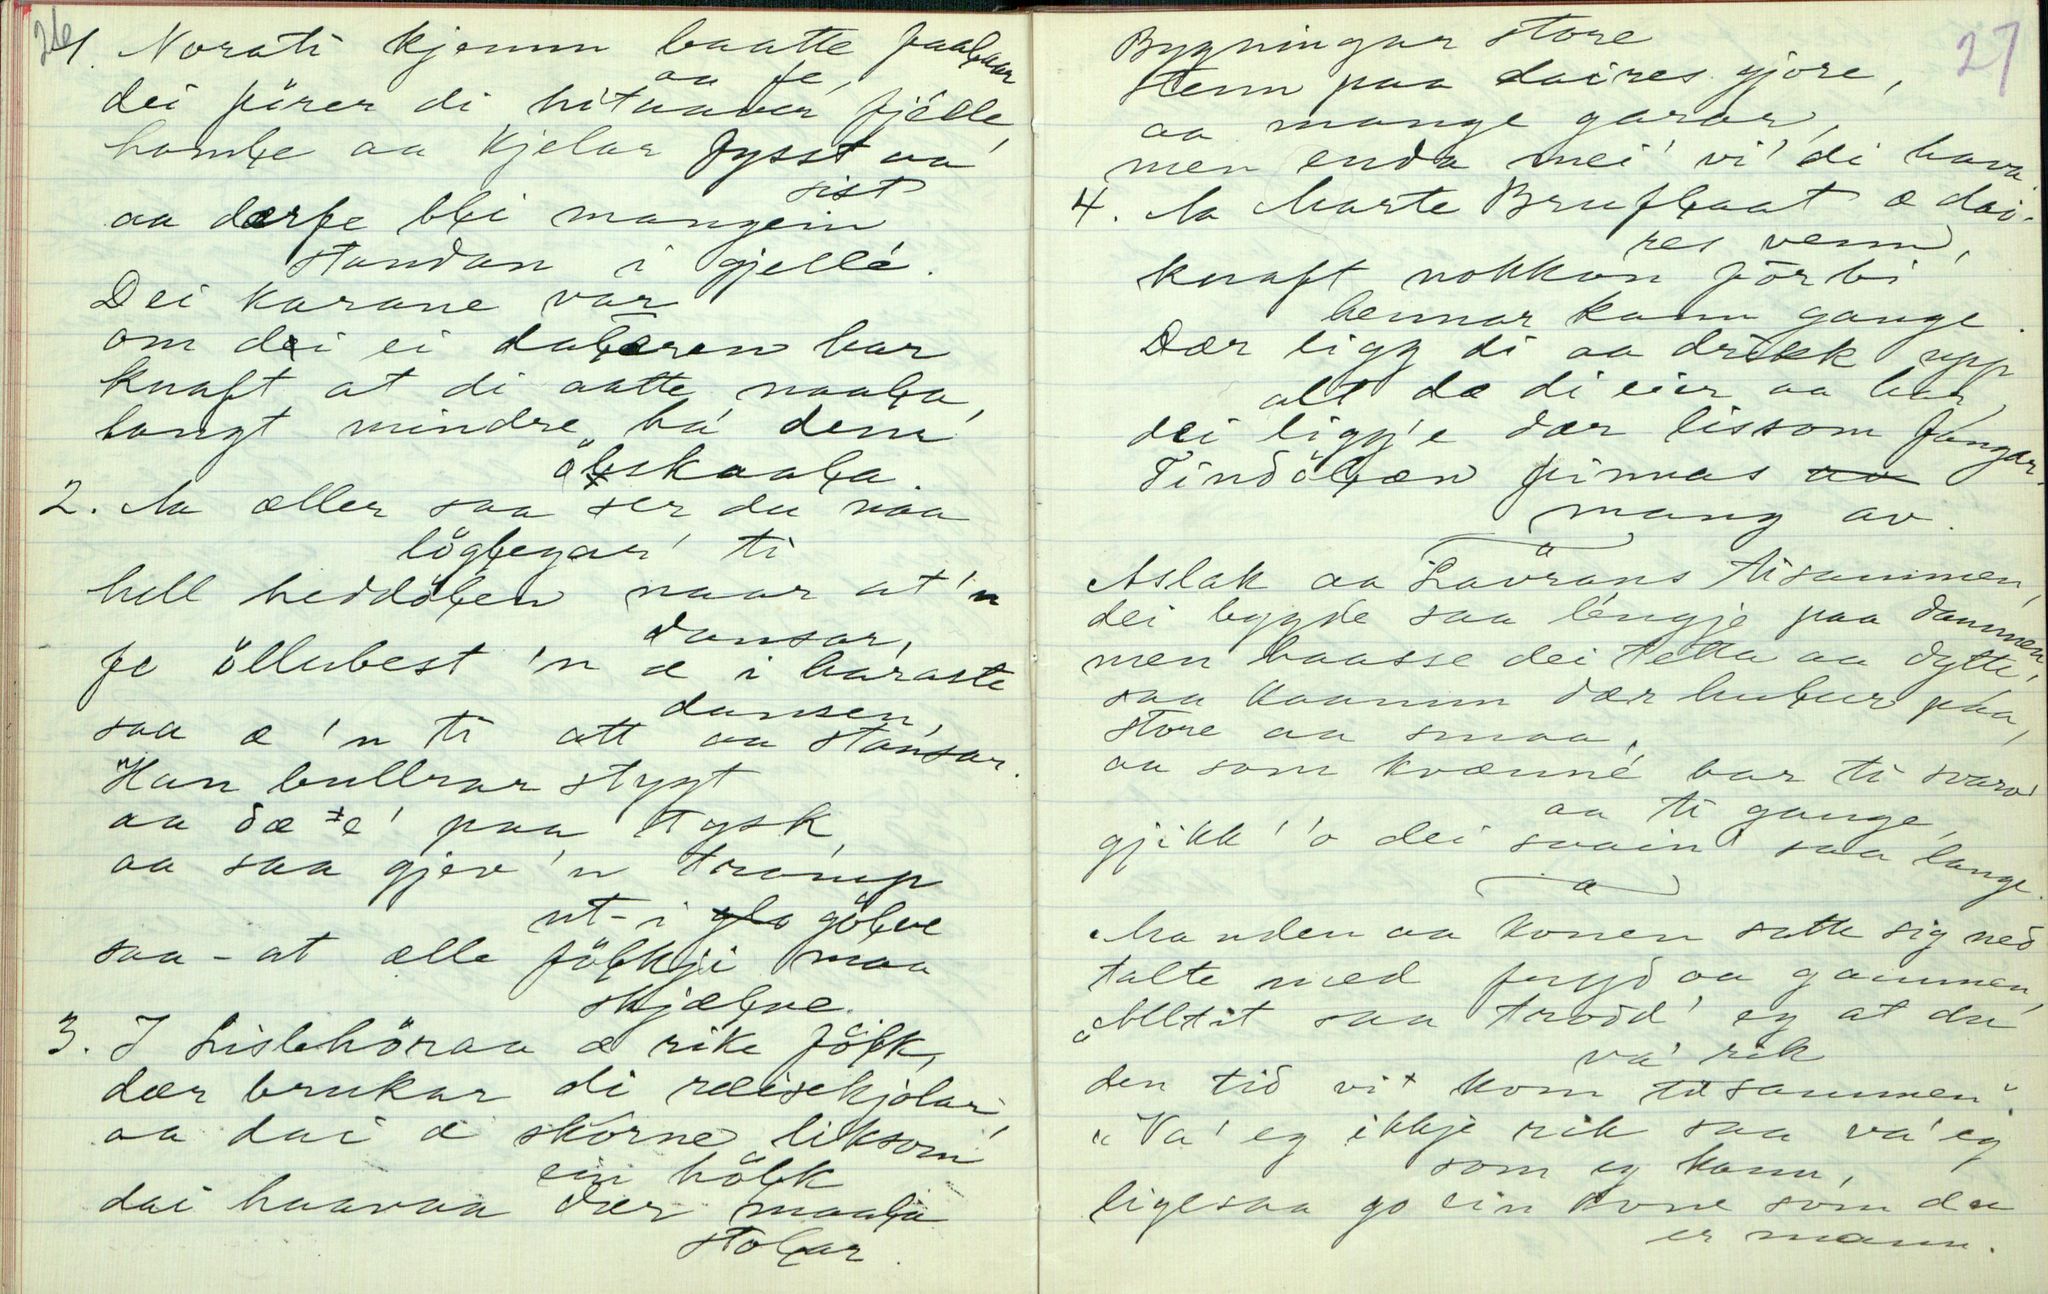 26
1. Norati kjemm baatte faaƚaar
aa fe,
dei förer di hitaaver fjélle,
hambe aa kjelar fysst aa
sist
aa dærfe bli mangein
standan i gjellé.
Dei karane var
om dei ei dalæren har
knaft at di aatte naaƚa,
langt mindre ha' dem
öƚskaaƚa.
2. Aa æller saa ser du naa
löglegar' ti
hell heddöƚen naar at'n
dansar,
fe öllubest 'n æ i haraste
dansen,
saa æ 'n ti att aa stansar.
"Han bullrar stygt
aa dæ æ' paa tysk
aa saa gjev 'n tramp
ut-i göƚve
saa-at alle föƚkji maa
skjæƚve.
3. I Lislehöraa æ rike föƚk,
dær brukar di reisekjolar,
aa dai æ skorne liksom
ein höƚk
dai haavaa dær maaƚa
stoƚar.
27
Bygningar store
stenn paa daires gjore,
aa mange garar,
men enda mei' vi' di hava.
4. Aa Marte Brufƚaat æ dai-
res venn,
knaft nokkon förbi
hennar kann gange.
Dær ligg di aa drikk upp
alt dæ di eir aa har,
dei ligg'e dær lissom fangar.
Tindöƚæn finnas
mang av.
Aslak aa Lavrans tisammen,
dei bygde saa léngje paa dammen,
men baasse dei tetta aa dytte,
saa kaamm dær huƚur paa,
store aa smaa,
aa som kvænné var ti svarv'
aa ti gange,
gjikk' 'o dei svain' saa lange.
Manden aa konen satte sig ned
talte med fryd aa gammen,
"Alltit saa trodd' eg at du
va' rik
den tid vi kom tilsammen".
"Va' eg ikkje rik saa va' eg
som eg kann,
ligesaa go ein kone som du
er mann.